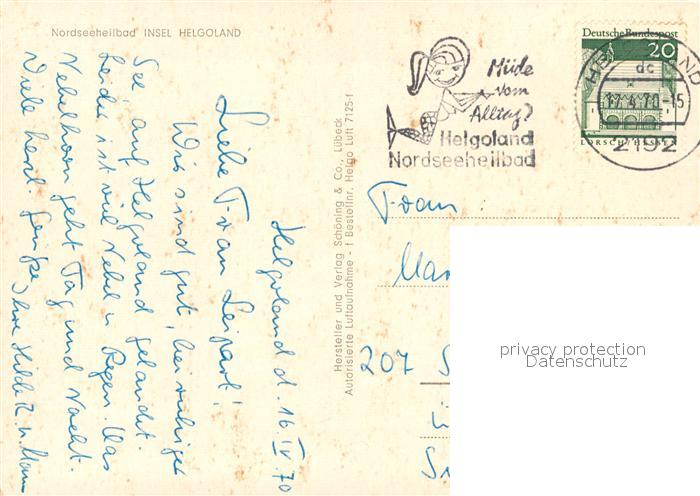 Nordseeheilbad INSEL HELGOLAND
Helgoland d. 16. IV. 70
Liebe Frau Leipart!
Wir sind gut, bei ruhiger
See, auf Helgoland gelandet.
Leider ist viel Nebel u. Regen. Das
Nebelhorn geht Tag und Nacht.
Viele herzl. Grüße, Ihre Hilde R. u. Mann
Hersteller und Verlag Schöning & Co., Lübeck
Autorisierte Luftaufnahme - † Bestellnr. Helgo Luft 7125-1
Müde
vom
Alltag?
Helgoland
Nordseeheilbad
Deutsche Bundespost
20
LORSCH/HESSEN
dc
17.4.70-15
2192
Frau
207
privacy protection
Datenschutz